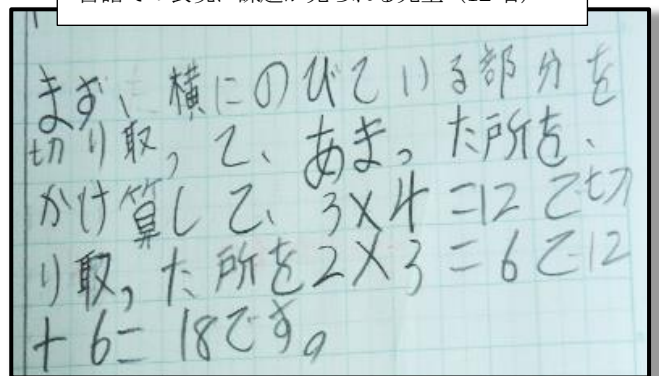 まず、横にのびている部分を
切り取って、あまった所を、
かけ算して、3×4=12で切
り取った所を2×3=6で12
+6=18です。